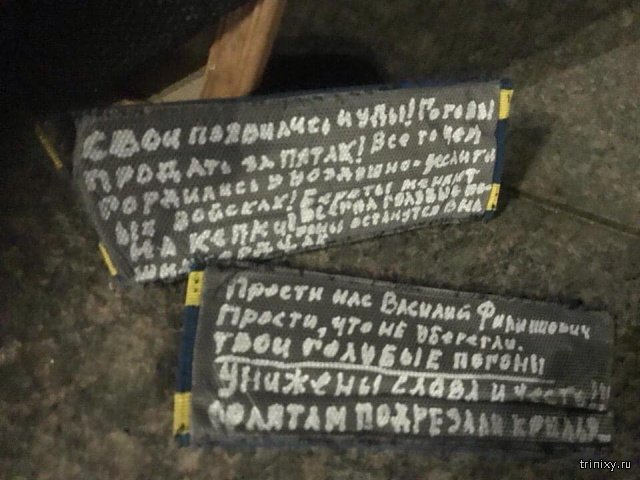 СВОИ ПОЯВИЛИСЬ ИУДЫ! ГОТОВЫ
ПРОДАТЬ ЗА ПЯТАК! ВСЕ ТО ЧЕМ
ГОРДИЛИСЬ У ВОЗДУШНО-ДЕСАНТН
ЫХ ВОЙСКАХ! БЕРЕТЫ МЕНЯЮТ
НА КЕПКУ! ГОЛУБЫЕ ПО-
ОСТАНУТСЯ В НА
Прости нас Василий Филиппович
Прости, что не уберегли.
ТВОИ ГОЛУБЫЕ ПОГОНЫ
УНИЖЕНЫ СЛАВА И ЧЕСТЬ!!!
ПОДРЕЗАЛИ КРЫЛЬЯ...
trinixy.ru